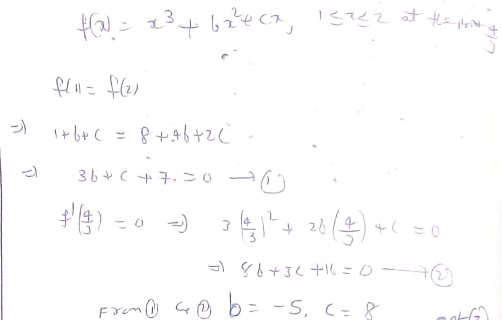 f(x) = x³ + bx² + cx, 1 ≤ x ≤ 2 at the point 4/3
f(1) = f(2)
⇒ 1 + b + c = 8 + 4b + 2c
⇒ 3b + c + 7 = 0 → ①
f'(4/3) = 0 ⇒ 3(4/3)² + 2b(4/3) + c = 0
⇒ 8b + 3c + 16 = 0 → ②
From ① & ② b = -5, c = 8